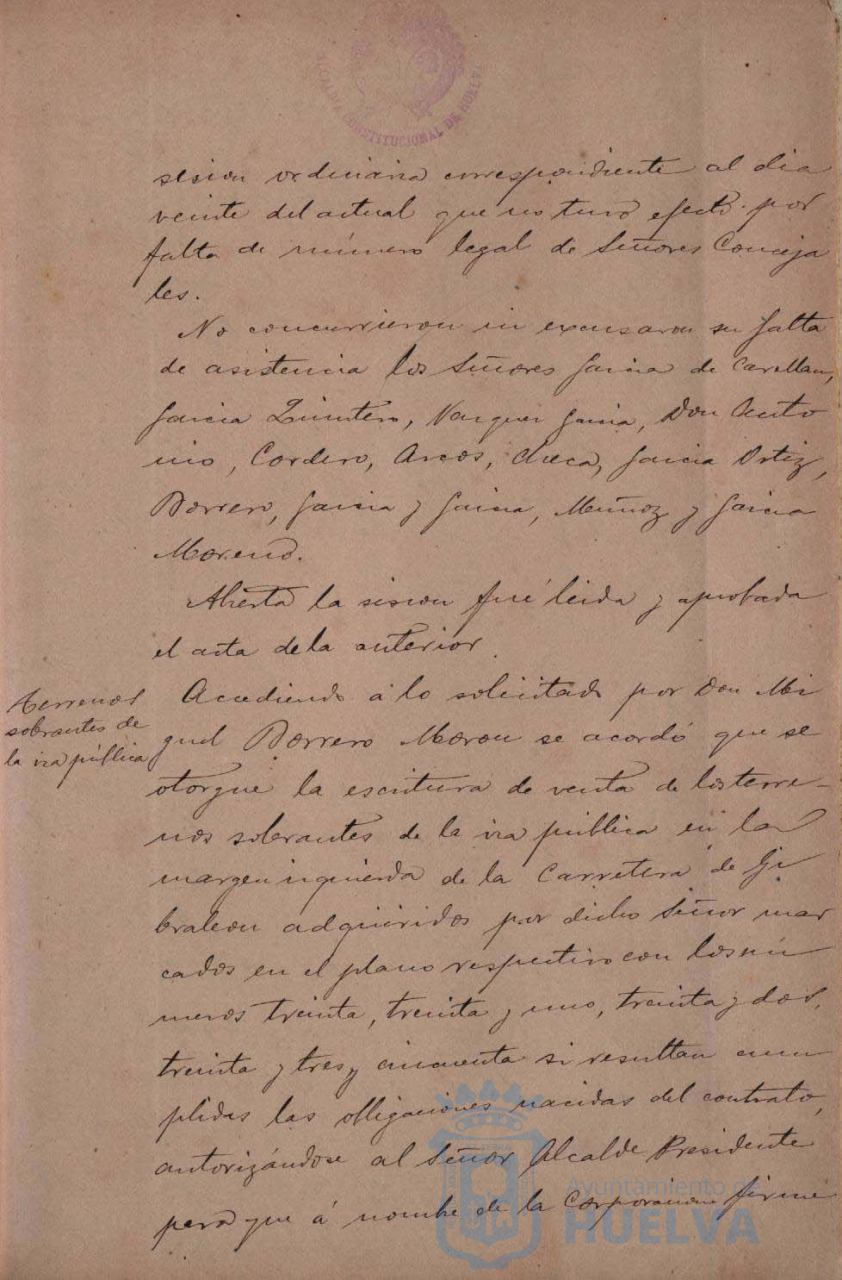 ALCALDIA CONSTITUCIONAL DE HUELVA
sesion ordinaria correspondiente al dia
veinte del actual que no tuvo efecto por
falta de número legal de Señores Conceja
les.
No concurrieron ni excusaron su falta
de asistencia los Señores Garcia de
Garcia Quintero, Vazquez Garcia, Don Anto
nio, Cordero, Arcos, Checa, Garcia Ortiz,
Borrero, Garcia y Garcia, Muñoz y Garcia
Moreno.
Abierta la sesion fué leida y aprobada
el acta de la anterior.
terrenos
sobrantes de
la via pública
Accediendo á lo solicitado por Don Mi
guel Borrero Moron se acordó que se
otorgue la escritura de venta de los terre-
nos sobrantes de la via pública en la
margen izquierda de la Carretera de Gi
braleon adquiridos por dicho Señor mar
cados en el plano respectivo con los nú
meros treinta, treinta y uno, treinta y dos,
treinta y tres y cincuenta si resultan cum
plidas las obligaciones nacidas del contrato,
autorizándose al Señor Alcalde Presidente
para que á nombre de la Corporacion firme
Ayuntamiento de
HUELVA